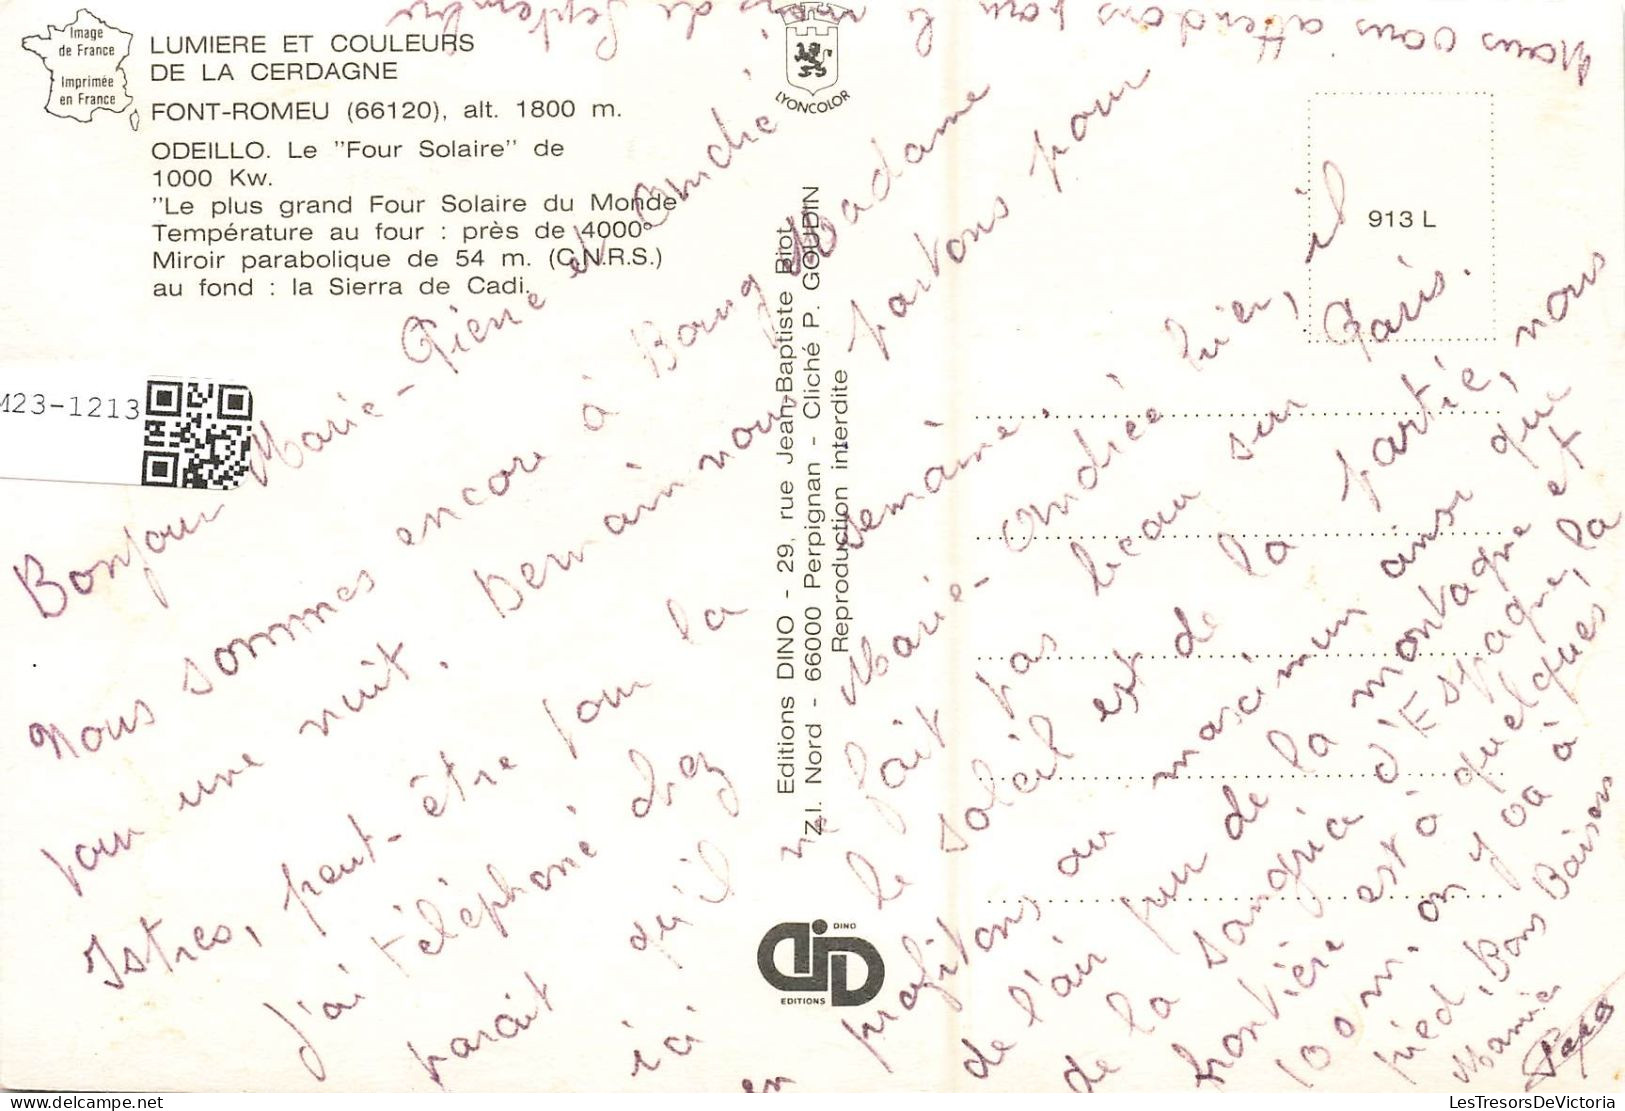 Image
de France
Imprimée
en France
LUMIERE ET COULEURS
DE LA CERDAGNE
FONT-ROMEU (66120), alt. 1800 m.
ODEILLO. Le "Four Solaire" de
1000 Kw.
"Le plus grand Four Solaire du Monde"
Température au four : près de 4000°
Miroir parabolique de 54 m. (C.N.R.S.)
au fond : la Sierra de Cadi.
LYONCOLOR
913 L
M23-1213
Editions DINO - 29, rue Jean-Baptiste Biot
Z.I. Nord - 66000 Perpignan - Cliché P. GOUDIN
Reproduction interdite
DINO
EDITIONS
Bonjour Marie-Pierre et André
Nous sommes encore à Bourg Madame
pour une nuit. Demain nous partons pour
Istres, peut-être pour la semaine.
J'ai téléphoné chez Marie-Andrée hier, il
paraît qu'il n fait pas beau sur Paris.
ici le soleil est de la partie, nous
en profitons au maximum ainsi que
de l'air pur de la montagne et
de la sangria d'Espagne, la
frontière est à quelques
100 m. on y va à
pied, Bons Baisers
Mamie
Papo
Nous vous attendons pour le mois de Septembre
LesTresorsDeVictoria